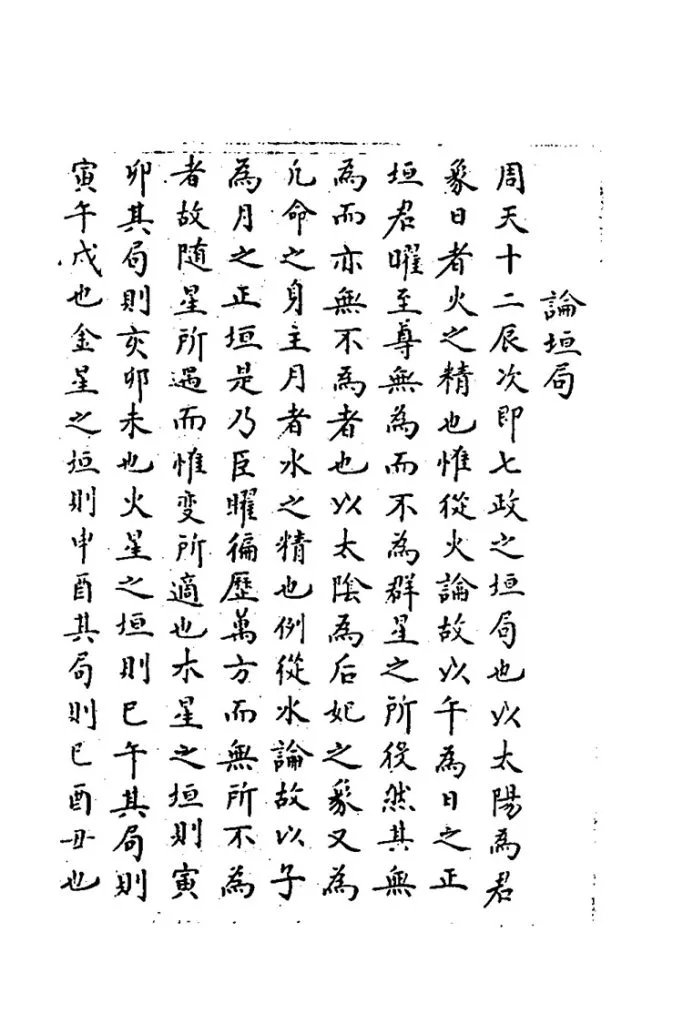 論垣局
周天十二辰次即七政之垣局也以太陽為君
象日者火之精也惟從火論故以午為日之正
垣君曜至尊無為而不為群星之所役然其無
為而亦無不為者也以太陰為后妃之象又為
凡命之身主月者水之精也例從水論故以子
為月之正垣是乃臣曜徧歷萬方而無所不為
者故随星所遇而惟变所適也木星之垣則寅
卯其局則亥卯未也火星之垣則巳午其局則
寅午戌也金星之垣則申酉其局則巳酉丑也